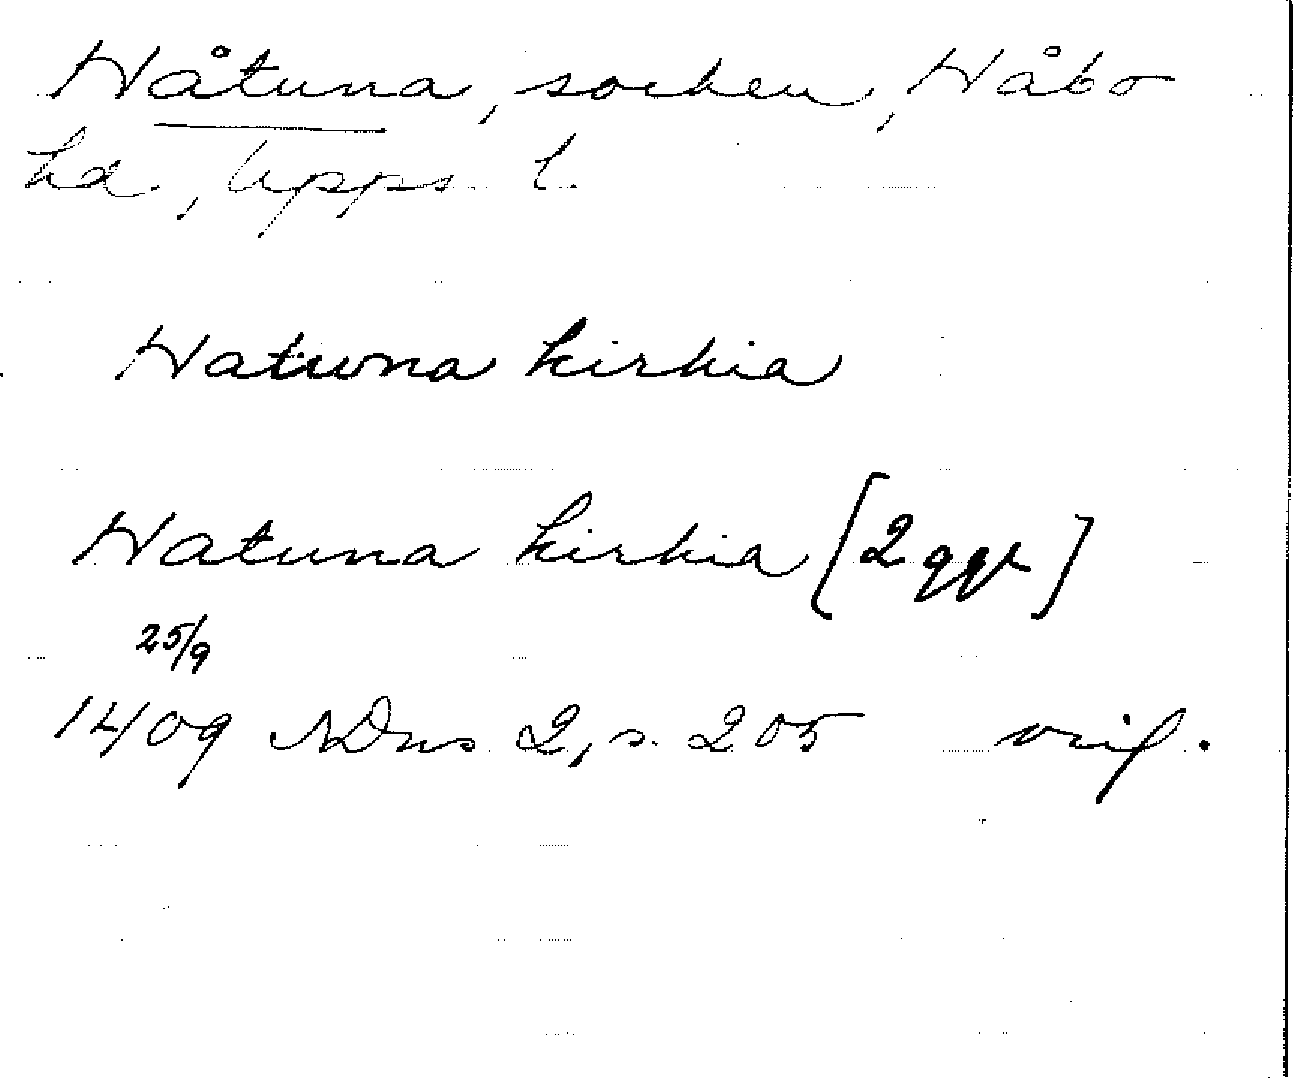 Håtuna, socken, Håbo
hd., Upps. l.
Hatwna kirkia
Hatuna kirkia [2 ggr]
25/9
1409 SDns 2, s. 205 orig.